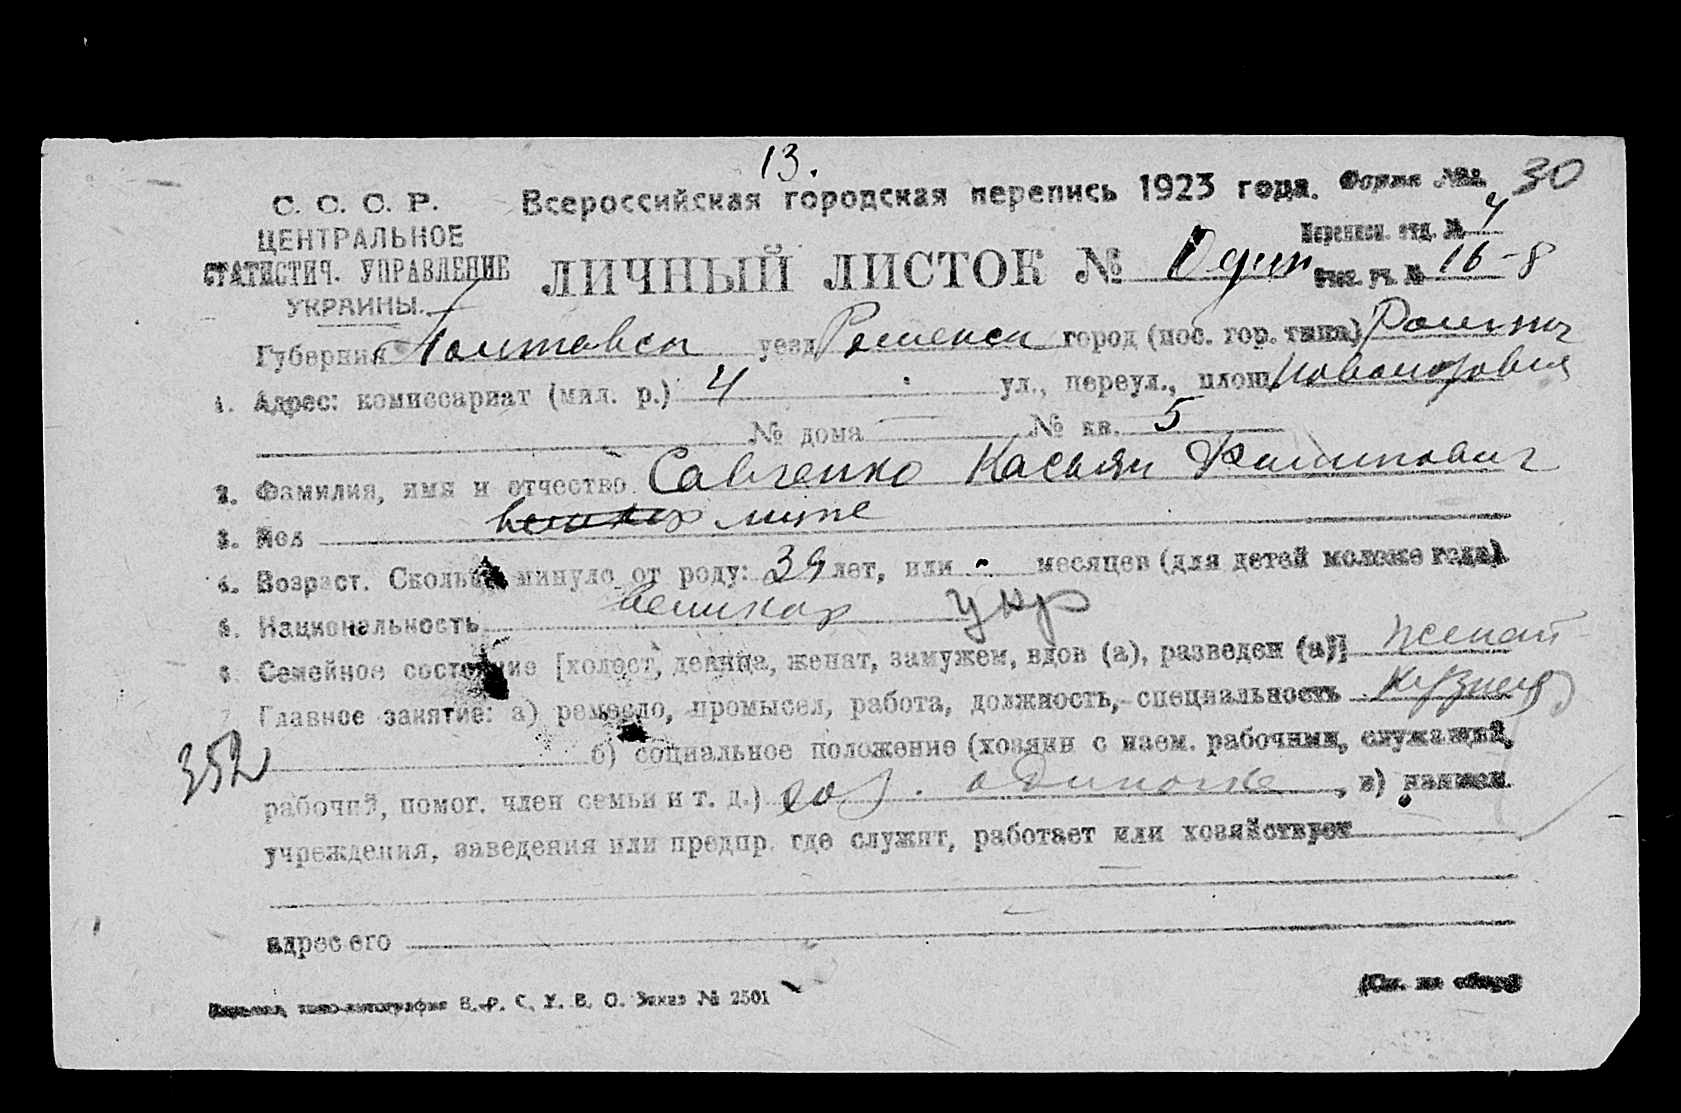 13.
С. С. С. Р.
ЦЕНТРАЛЬНОЕ
СТАТИСТИЧ. УПРАВЛЕНИЕ
УКРАИНЫ.
Всероссийская городская перепись 1923 года.
Форма № 30
Переписн. отд. № 4
ЛИЧНЫЙ ЛИСТОК № Один
уч. № 16-8
Губерния Полтавск уезд Роменск город (пос. гор. типа) Ромны
1. Адрес: комиссариат (мил. р.) 4 ул., переул., площ.
№ дома — № кв. 5
2. Фамилия, имя и отчество Савченко Касьян Филиппович
3. Пол муж
4. Возраст. Сколько минуло от роду: 39 лет, или - месяцев (для детей моложе года)
5. Национальность великор укр
6. Семейное состояние [холост, девица, женат, замужем, вдов (а), разведен (а)] женат
7. Главное занятие: а) ремесло, промысел, работа, должность, специальность кузнец
352
б) социальное положение (хозяин с наем. рабочими, служащий,
рабочий, помог. член семьи и т. д.) хоз. одиночка, в) наимен.
учреждения, заведения или предпр. где служит, работает или хозяйствует
—
адрес его —
Р. С. У. В. О. Заказ № 2501
(См. на обор.)